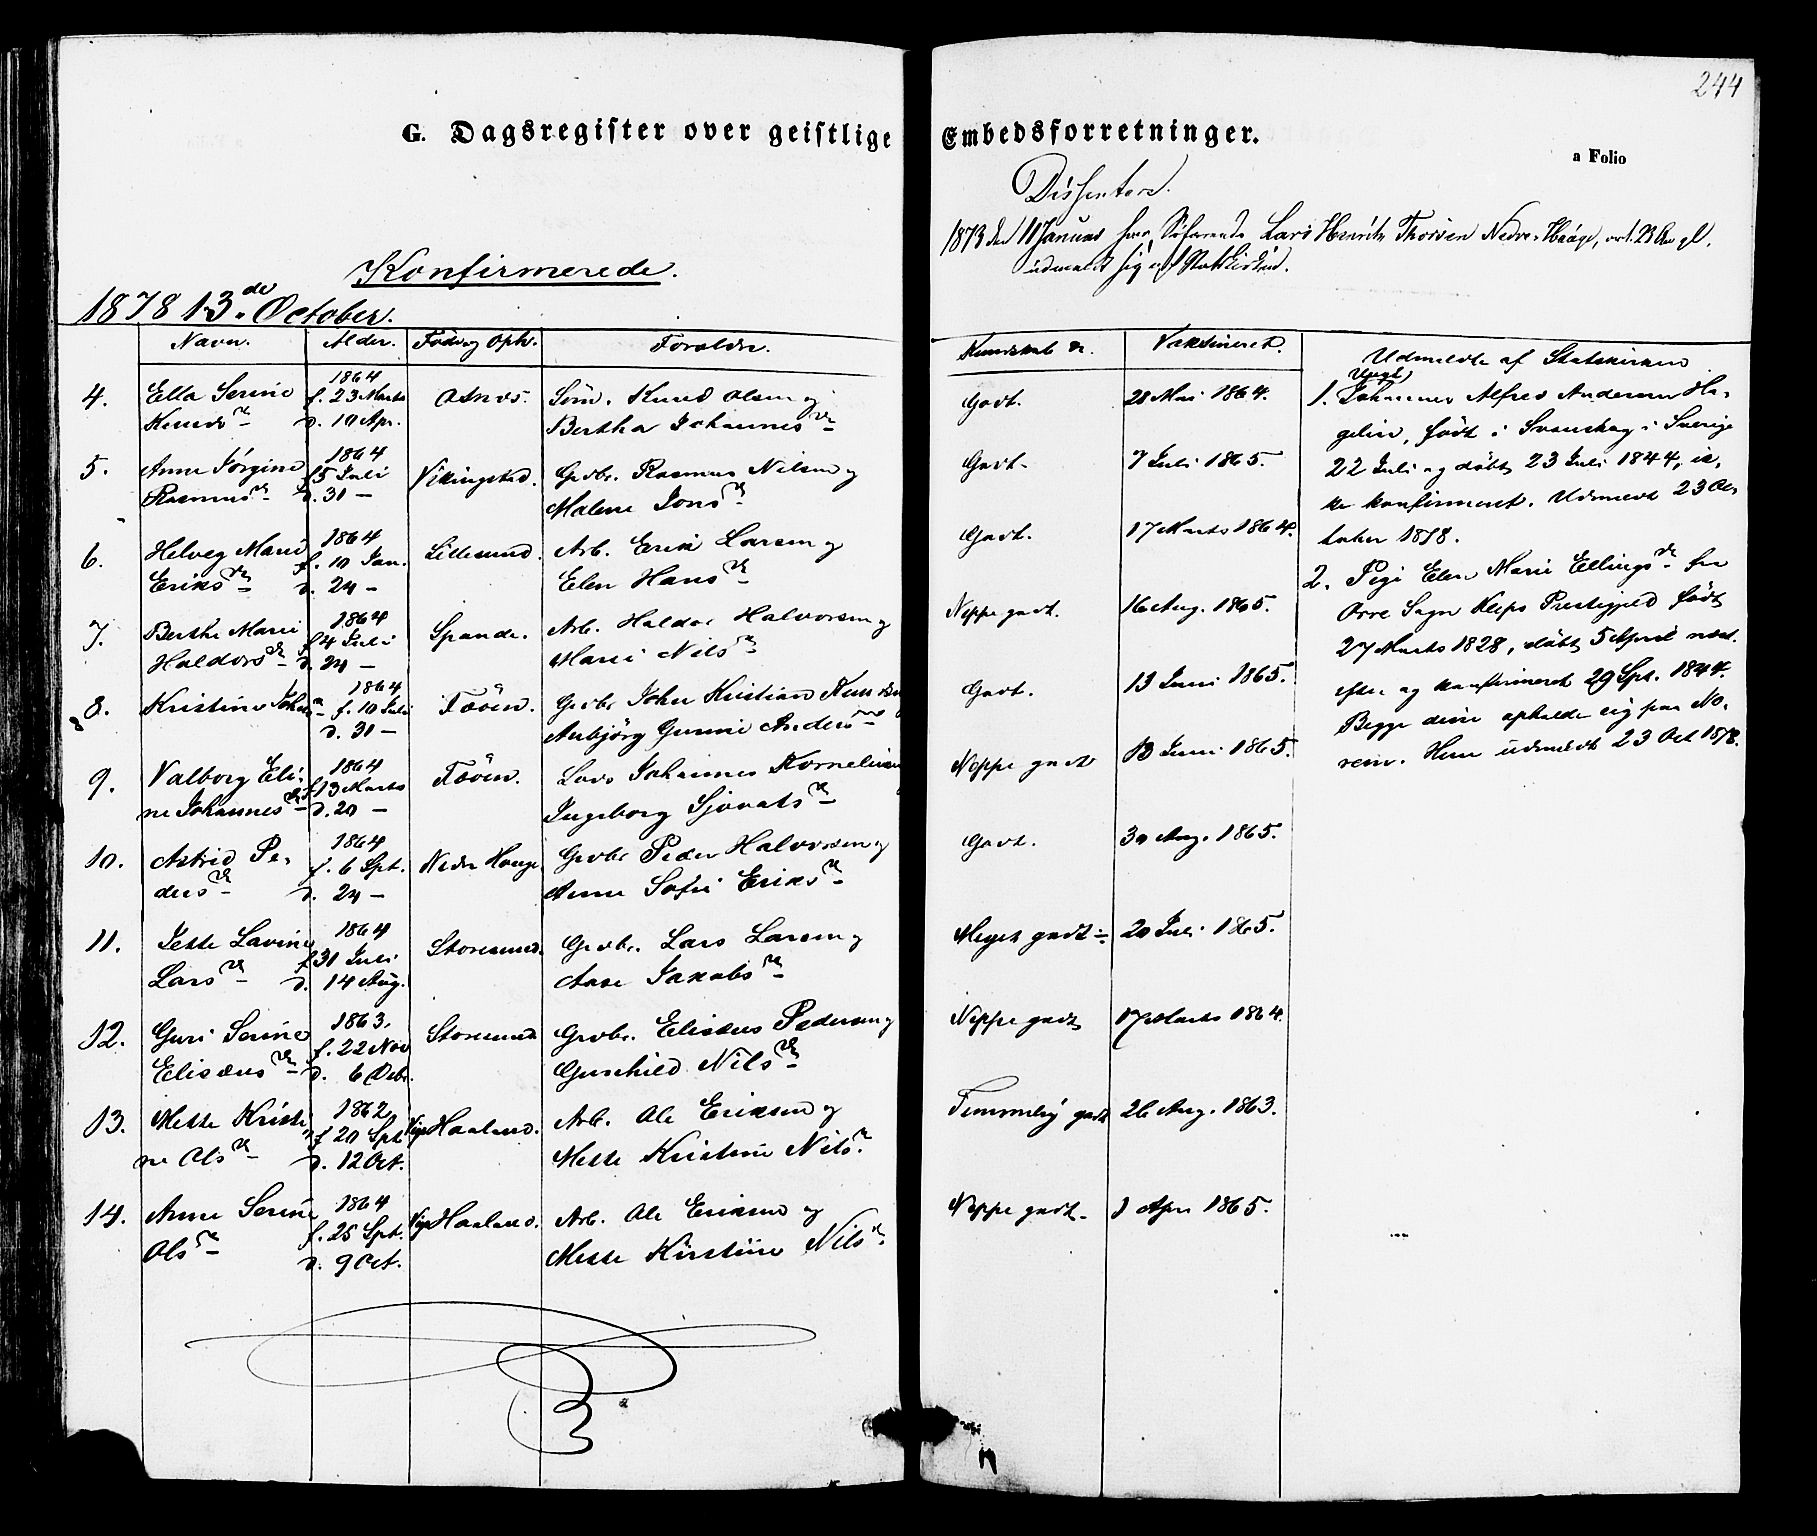 244
G. Dagsregister over geistlige Embedsforretninger.
a Folio
Dissentere.
1873 den 11 Januar har Söfarende Lars Henrik Thorsen Nedre-Hauge, 23 Aar gl.
udmeldt sig af Statskirken.
Konfirmerede.
1878 13de October.
Navn. Alder. Föde og Oph. Forældre. Kundskab &. Vaksineret. Udmeldte af Statskirken
4. Ella Serine Knudsdr
1864 f. 23 Marts d. 10 Apr.
Osnes.
Sörm. Knud Olsen og
Bertha Johannesdr
Godt.
28 Mai 1864.
5. Anne Jörgine Rasmusdr
1864 f. 5 Juli d. 31 —
Vikingstad.
Grdbr. Rasmus Nilsen og
Malene Jonsdr
Godt.
7 Juli 1865.
6. Helveg Marie Eriksdr
1864 f. 10 Jan. d. 24 —
Lillesund.
Arb. Erik Larsen og
Elen Hansdr
Godt.
17 Marts 1864.
7. Berthe Marie Haldorsdr
1864 f. 4 Juli d. 24 —
Spande.
Arb. Haldor Halvorsen og
Marie Nilsdr
Neppe godt.
16 Aug. 1865.
8. Kristine Johnsdr
1864 f. 10 Juli d. 31 —
Fööen.
Grdbr John Kristian
Anbjörg Gunnie Andersdr
Godt.
13 Juni 1865.
9. Valborg Eli-
ne Johannesdr
1864 f. 13 Marts d. 20 —
Fööen.
Lods Johannes Kornelius
Ingeborg Sjovatsdr
Neppe godt
13 Juni 1865.
10. Astrid Pe-
dersdr
1864 f. 6 Spt. d. 24 —
Nedr Hauge
Grdbr Peder Halvorsen og
Anne Sofie Eriksdr
Godt.
30 Aug. 1865.
11. Jette Lavine Larsdr
1864 f. 31 Juli d. 14 Aug.
Storesund.
Grdbr. Lars Larsen og
Aase Jakobsdr
Meget godt ÷
20 Juli 1865.
12. Guri Serine Elisæusdr
1863. f. 22 Nov d. 6 Debr.
Storesund
Grdbr. Elisæus Pedersen og
Gunhild Nilsdr
Neppe godt
17 Marts 1864.
13. Mette Kristi-
ne Olsdr
1862 f. 20 Spt. d. 12 Oct.
Haaland.
Arb. Ole Eriksen og
Mette Kristine Nilsdr.
Temmelig godt
26 Aug. 1863.
14. Anne Serine Olsdr
1864 f. 25 Spt. d. 9 Oct.
Haaland.
Arb. Ole Eriksen og
Mette Kirstine Nilsdr.
Neppe godt.
1 Apr 1865.
1. Ungk. Johannes Alfred Andersen Ha-
gelin, födt i Svanskog i Sverige
22 Juli og döbt 23 Juli 1844, ik-
ke konfirmeret. Udmeldt 23 Oc-
tober 1878.
2. Pige Elen Marie Ellingsdr fra
Orre Sogn Kleps Prestegjeld födt
27 Marts 1828, döbt 5 April næst-
efter og konfirmeret 29 Spt. 1844.
Begge disse opholde sig paa No-
rein. Hun udmeldt 23 Oct 1878.